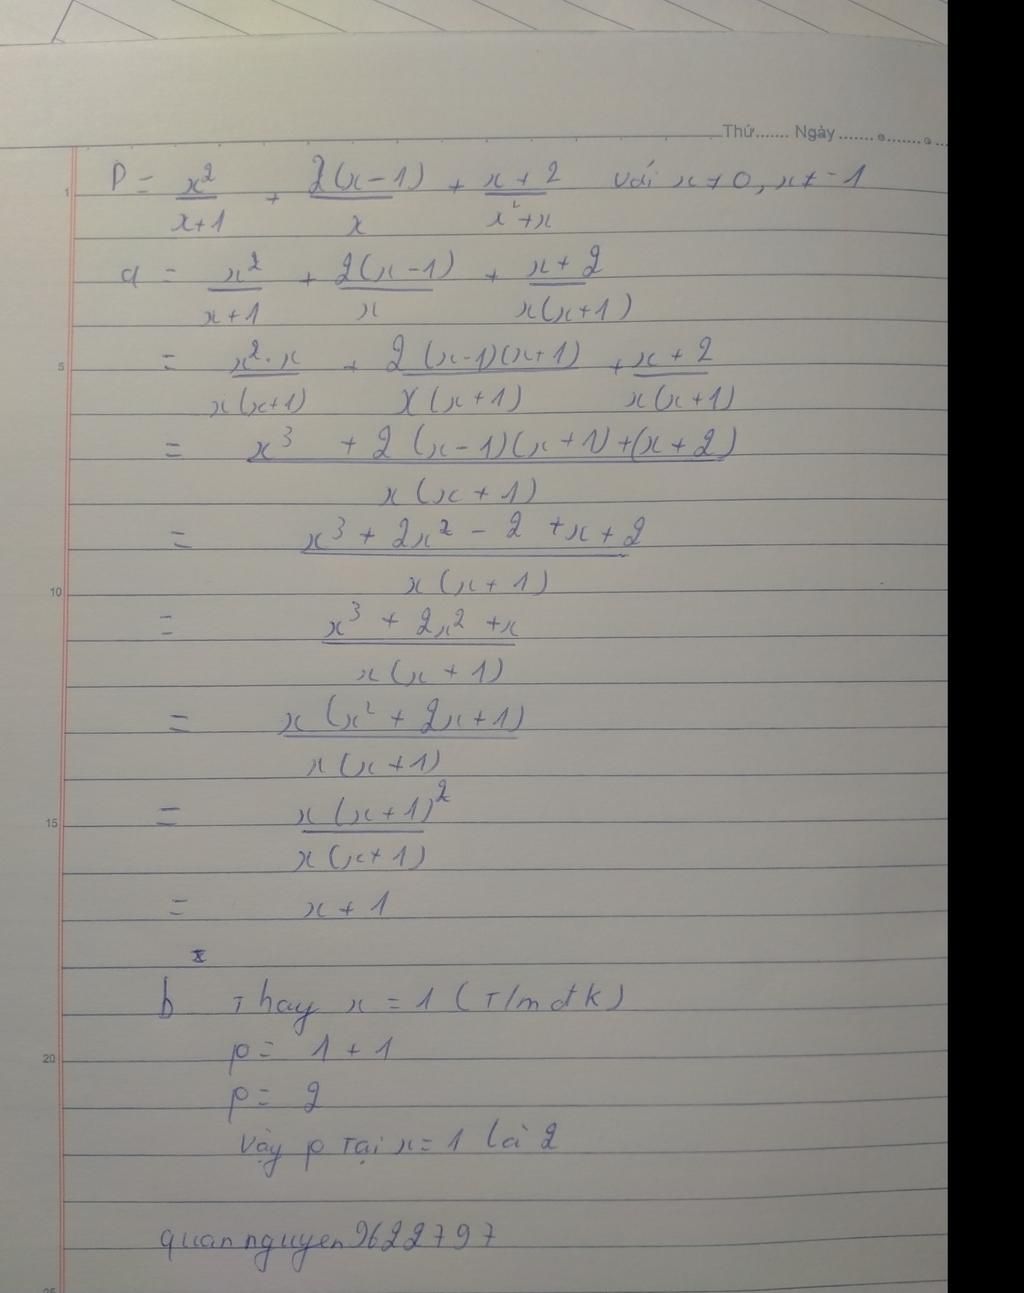 Thứ....... Ngày.............
P = x²/(x+1) + 2(x-1)/x + (x+2)/(x²+x) với x ≠ 0, x ≠ -1
a = x²/(x+1) + 2(x-1)/x + (x+2)/(x(x+1))
= x².x/(x(x+1)) + 2(x-1)(x+1)/(x(x+1)) + (x+2)/(x(x+1))
= (x³ + 2(x-1)(x+1)+(x+2))/(x(x+1))
= (x³ + 2x² - 2 + x + 2)/(x(x+1))
= (x³ + 2x² + x)/(x(x+1))
= x(x² + 2x+1)/(x(x+1))
= x(x+1)²/(x(x+1))
= x + 1
b Thay x = 1 (T/m đk)
p = 1 + 1
p = 2
Vậy p Tại x = 1 là 2
quannguyen9622797
1
5
10
15
20